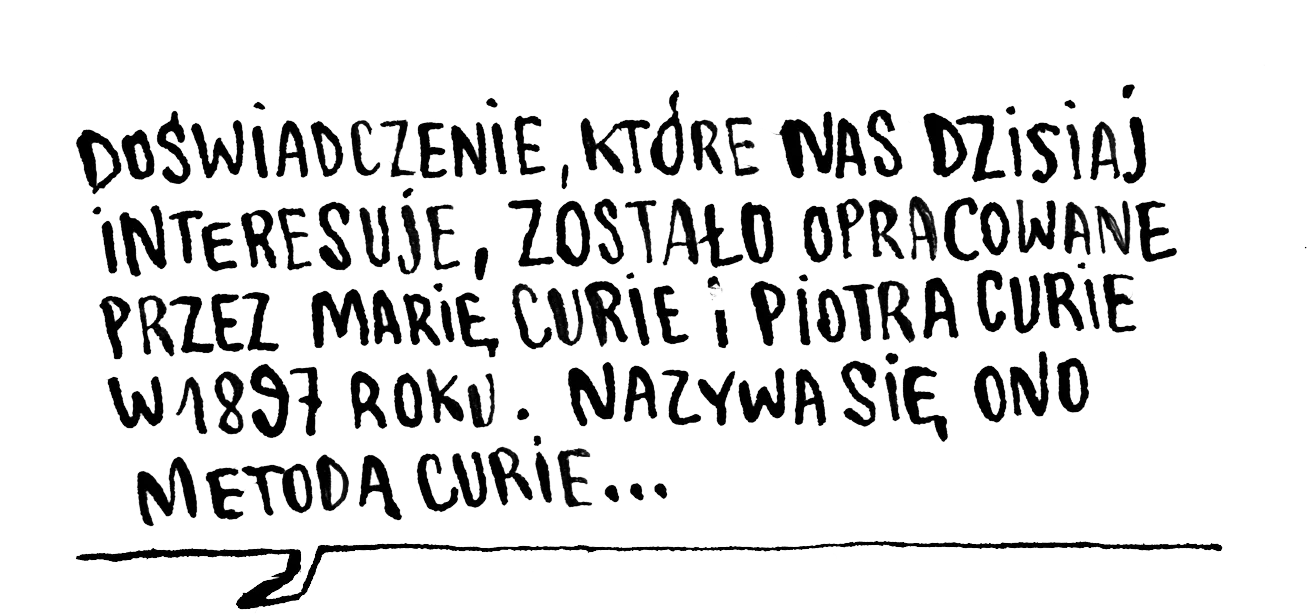 DOŚWIADCZENIE, KTÓRE NAS DZISIAJ
INTERESUJE, ZOSTAŁO OPRACOWANE
PRZEZ MARIĘ CURIE I PIOTRA CURIE
W 1897 ROKU. NAZYWA SIĘ ONO
METODĄ CURIE...